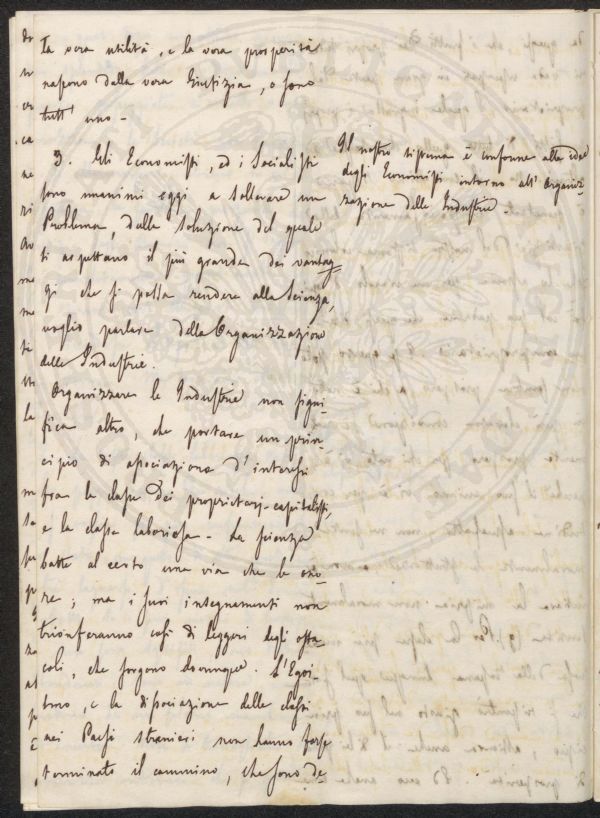 la vera utilità, e la vera prosperità
nascono dalla vera Giustizia, o sono
tutt' uno -
3. Gli Economisti, ed i Socialisti
sono unanimi oggi a sollevare un
Problema, dalla soluzione del quale
si aspettano il più grande dei vantag-
gi che si possa rendere alla Scienza,
voglio parlare della Organizzazione
delle Industrie.
Organizzare le Industrie non signi-
fica altro, che portare un prin-
cipio di associazione d'interessi
fran la classe dei proprietarj-capitalisti,
e la classe laboriosa - La scienza
batte al certo una via che la ono-
re; ma i suoi insegnamenti non
trionferanno così di leggeri degli osta-
coli, che sorgono dovunque. L'Egoi-
smo, e la dissociazione delle classi
nei Paesi stranieri non hanno forse
terminato il cammino, che sono de-
Il nostro sistema è conforme alle idee
degli Economisti intorno all' Organiz-
zazione delle Industrie.